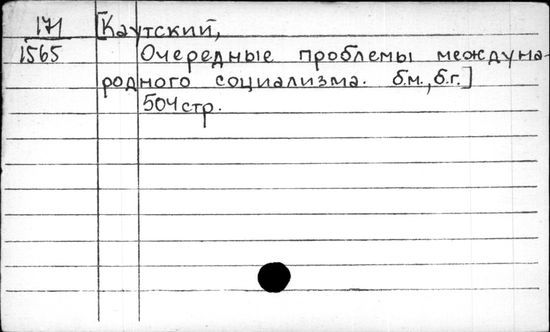 171 [Каутский,
1565 Очередные проблемы междуна-
родного социализма. б.м., б.г.]
504 стр.